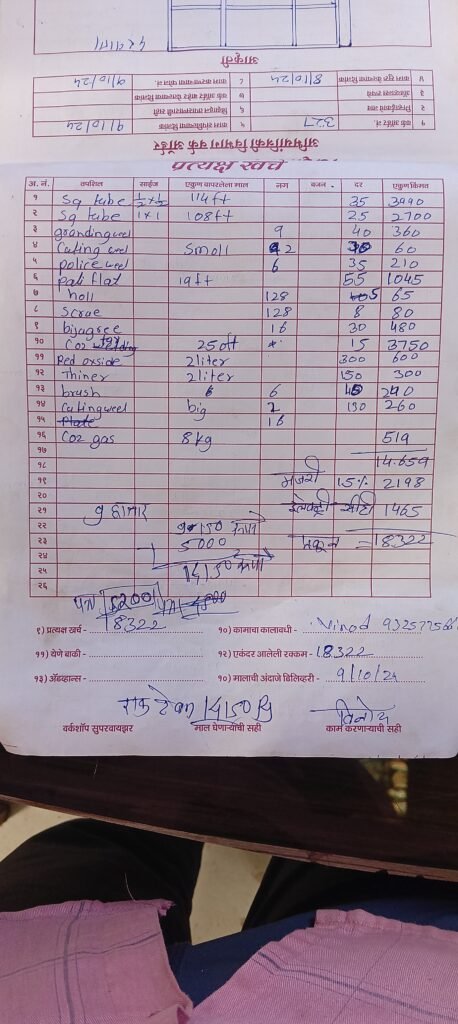 अभियांत्रिकी विभाग वर्क ऑर्डर
१ वर्क ऑर्डर नं. 327 ५ 9/10/24
४ 8/10/24 ८ 9/10/24
आकृती
प्रत्यक्ष खर्च
अ. नं. तपशिल साईज एकुण वापरलेला माल नग वजन दर एकुण किंमत
१ Sq tube 1½ x 1½ 114ft 35 3990
२ Sq tube 1x1 108ft 25 2700
३ grandingweel 9 40 360
४ Cating weel Smoll 2 30 60
५ police weel 6 35 210
६ pati flat 19ft 55 1045
७ holl 128 5 65
८ Scrue 128 8 80
९ bijagree 16 30 480
१० Co2 250ft 15 3750
११ Red oxside 2liter 300 600
१२ Thiner 2liter 150 300
१३ brush 6 40 240
१४ Catingweel big 2 130 260
१५ Plate 16
१६ Co2 gas 8kg 519
१७
१८ 14.659
१९ मजुरी 15% 2198
२०
२१ 9 हजार 1465
२२ 9150 रूपये
२३ 5000 एकुन =18322
२४
२५ 14150 रूपये
२६
९) प्रत्यक्ष खर्च - 18322 १०) कामाचा कालावधी - Vinod
११) येणे बाकी - १२) एकंदर आलेली रक्कम - 18322
१३) ॲडव्हान्स - १०) मालाची अंदाजे डिलिव्हरी - 9/10/24
14150 विनोद
वर्कशॉप सुपरवायझर माल घेणाऱ्याची सही काम करणाऱ्याची सही